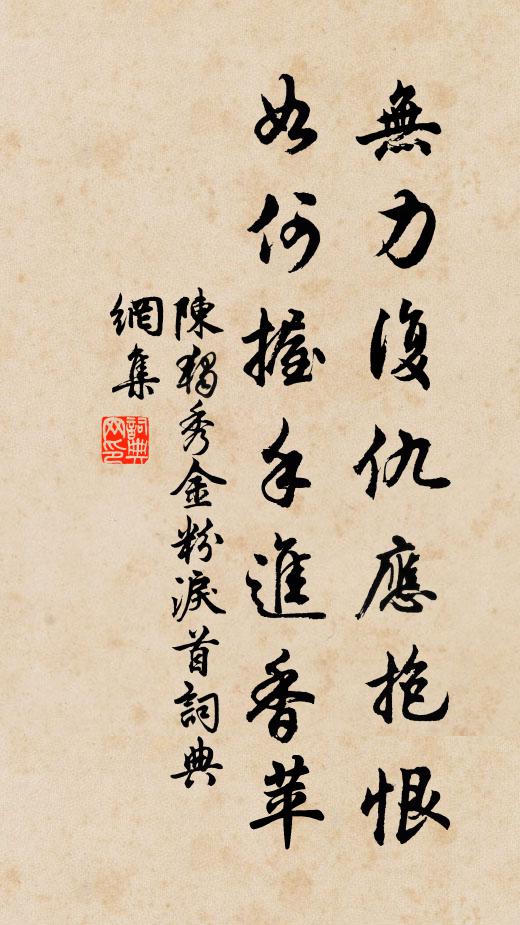 無力復仇應抱恨
如何握手進香苹
陳獨秀金粉淚首詞典
網集
詞典网印